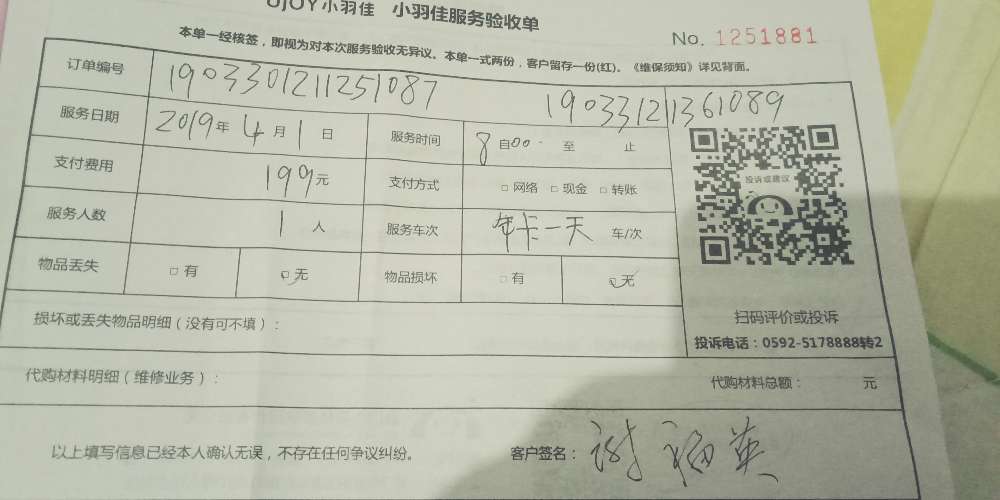 UJOY小羽佳 小羽佳服务验收单
No. 1251881
本单一经核签，即视为对本次服务验收无异议。本单一式两份，客户留存一份(红)。《维保须知》详见背面。
订单编号 1903301211251087 190331211361089
服务日期 2019年4月1日 服务时间 8自00 至 止
支付费用 199元 支付方式 □网络 □现金 □转账
投诉或建议
服务人数 1人 服务车次 年卡一天 车/次
物品丢失 □有 □无 物品损坏 □有 □无
损坏或丢失物品明细（没有可不填）：
扫码评价或投诉
投诉电话：0592-5178888转2
代购材料明细（维修业务）： 代购材料总额： 元
以上填写信息已经本人确认无误，不存在任何争议纠纷。 客户签名：谢福英